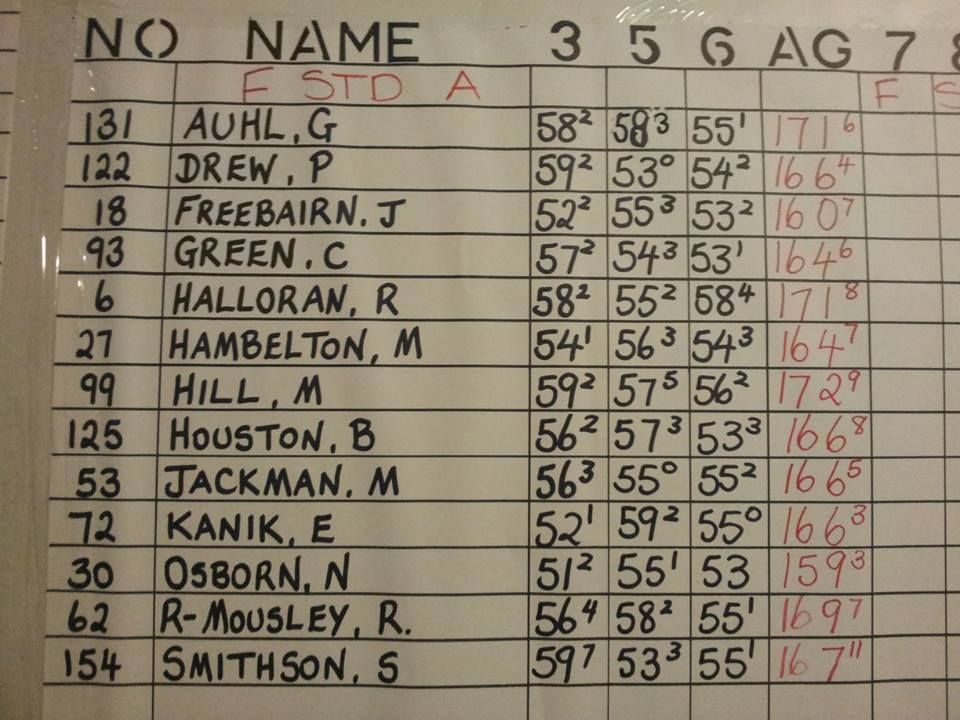 NO NAME 3 5 6 AG 7 8
F STD A F S
131 AUHL, G 58² 58³ 55¹ 171⁶
122 DREW, P 59² 53⁰ 54² 166⁴
18 FREEBAIRN. J 52² 55³ 53² 160⁷
93 GREEN, C 57² 54³ 53¹ 164⁶
6 HALLORAN, R 58² 55² 58⁴ 171⁸
27 HAMBELTON, M 54¹ 56³ 54³ 164⁷
99 HILL, M 59² 57⁵ 56² 172⁹
125 HOUSTON, B 56² 57³ 53³ 166⁸
53 JACKMAN. M 56³ 55⁰ 55² 166⁵
72 KANIK, E 52¹ 59² 55⁰ 166³
30 OSBORN, N 51² 55¹ 53 159³
62 R-MOUSLEY, R. 56⁴ 58² 55¹ 169⁷
154 SMITHSON, S 59⁷ 53³ 55¹ 167¹¹